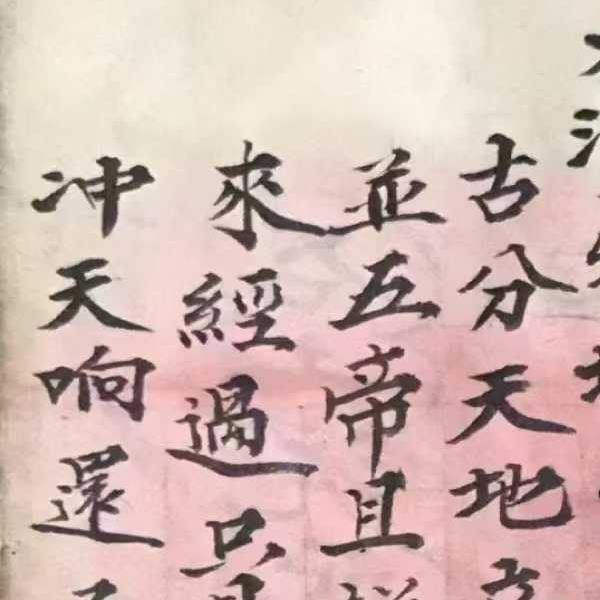 古分天地
並五帝且
來經過只
冲天响還